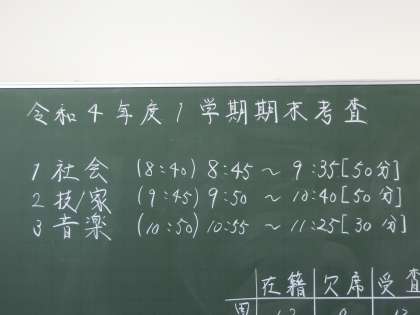 令和4年度1学期期末考査
1 社会 (8:40) 8:45 ～ 9:35[50分]
2 技/家 (9:45) 9:50 ～ 10:40[50分]
3 音楽 (10:50) 10:55 ～ 11:25[30分]
在籍 欠席 受査
男